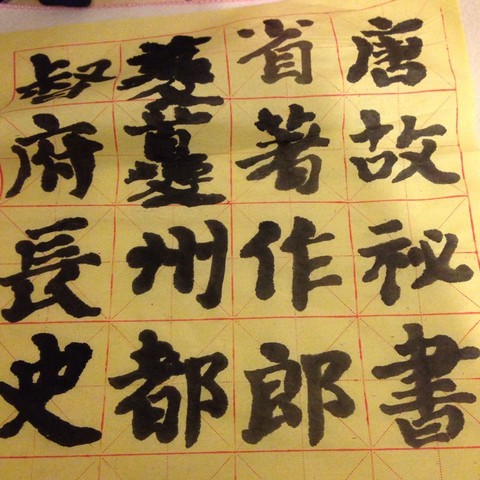 唐故祕書
省著作郎
夔州都
督府長史